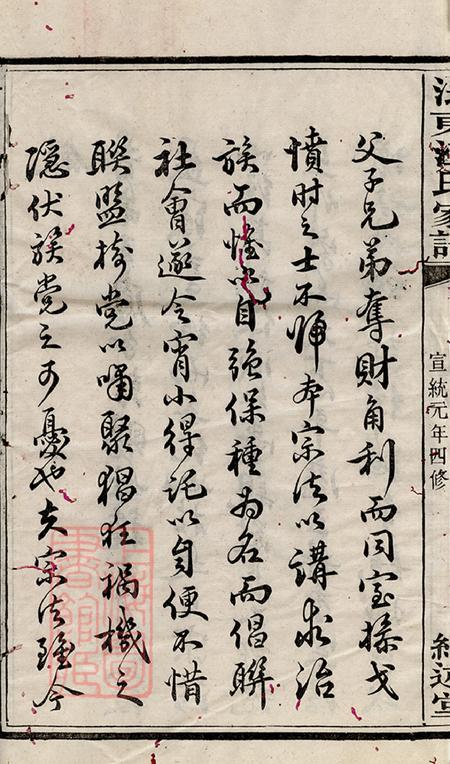 父子兄弟奪財角利而同室操戈
憤時之士不師本宗法以講求治
族而惟以自強保種為名而倡聯
社會遂令宵小得託以自便不惜
聯盟樹党以嘯聚猖狂禍機之
隱伏族党之可憂也夫宗法雖今
氏家譜
宣統元年四修